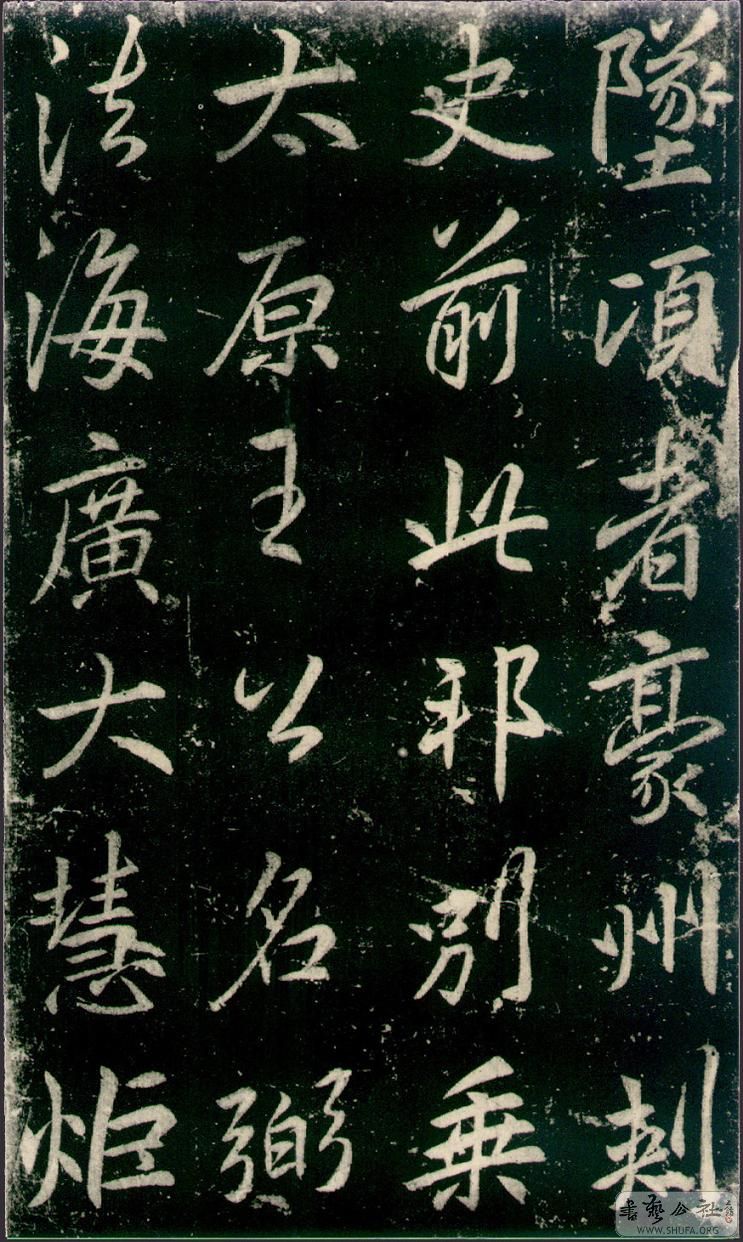 墜須者豪州刺
史前此邪別乗
太原王公名弼
法海廣大慧炬
書藝公社
WWW.SHUFA.ORG